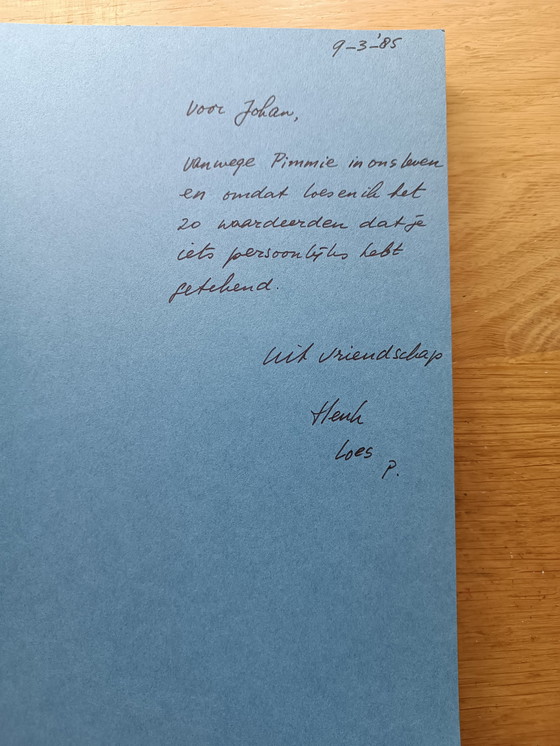 9-3-'85
Voor Johan,
vanwege Pimmie in ons leven
en omdat Loes en ik het
zo waardeerden dat je
iets persoonlijks hebt
getekend.
Uit vriendschap
Henk
Loes
P.